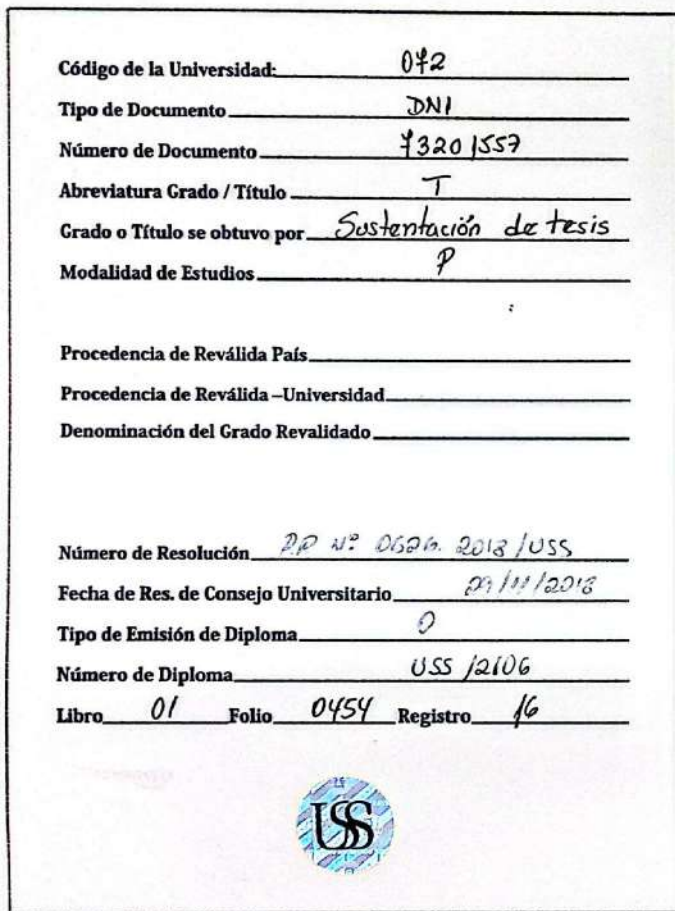 Código de la Universidad: 072
Tipo de Documento DNI
Número de Documento 73201557
Abreviatura Grado / Título T
Grado o Título se obtuvo por Sustentación de tesis
Modalidad de Estudios P
Procedencia de Reválida País
Procedencia de Reválida –Universidad
Denominación del Grado Revalidado
Número de Resolución Nº 2018/USS
Fecha de Res. de Consejo Universitario /2018
Tipo de Emisión de Diploma O
Número de Diploma USS /2106
Libro 01 Folio 0454 Registro 16
USS